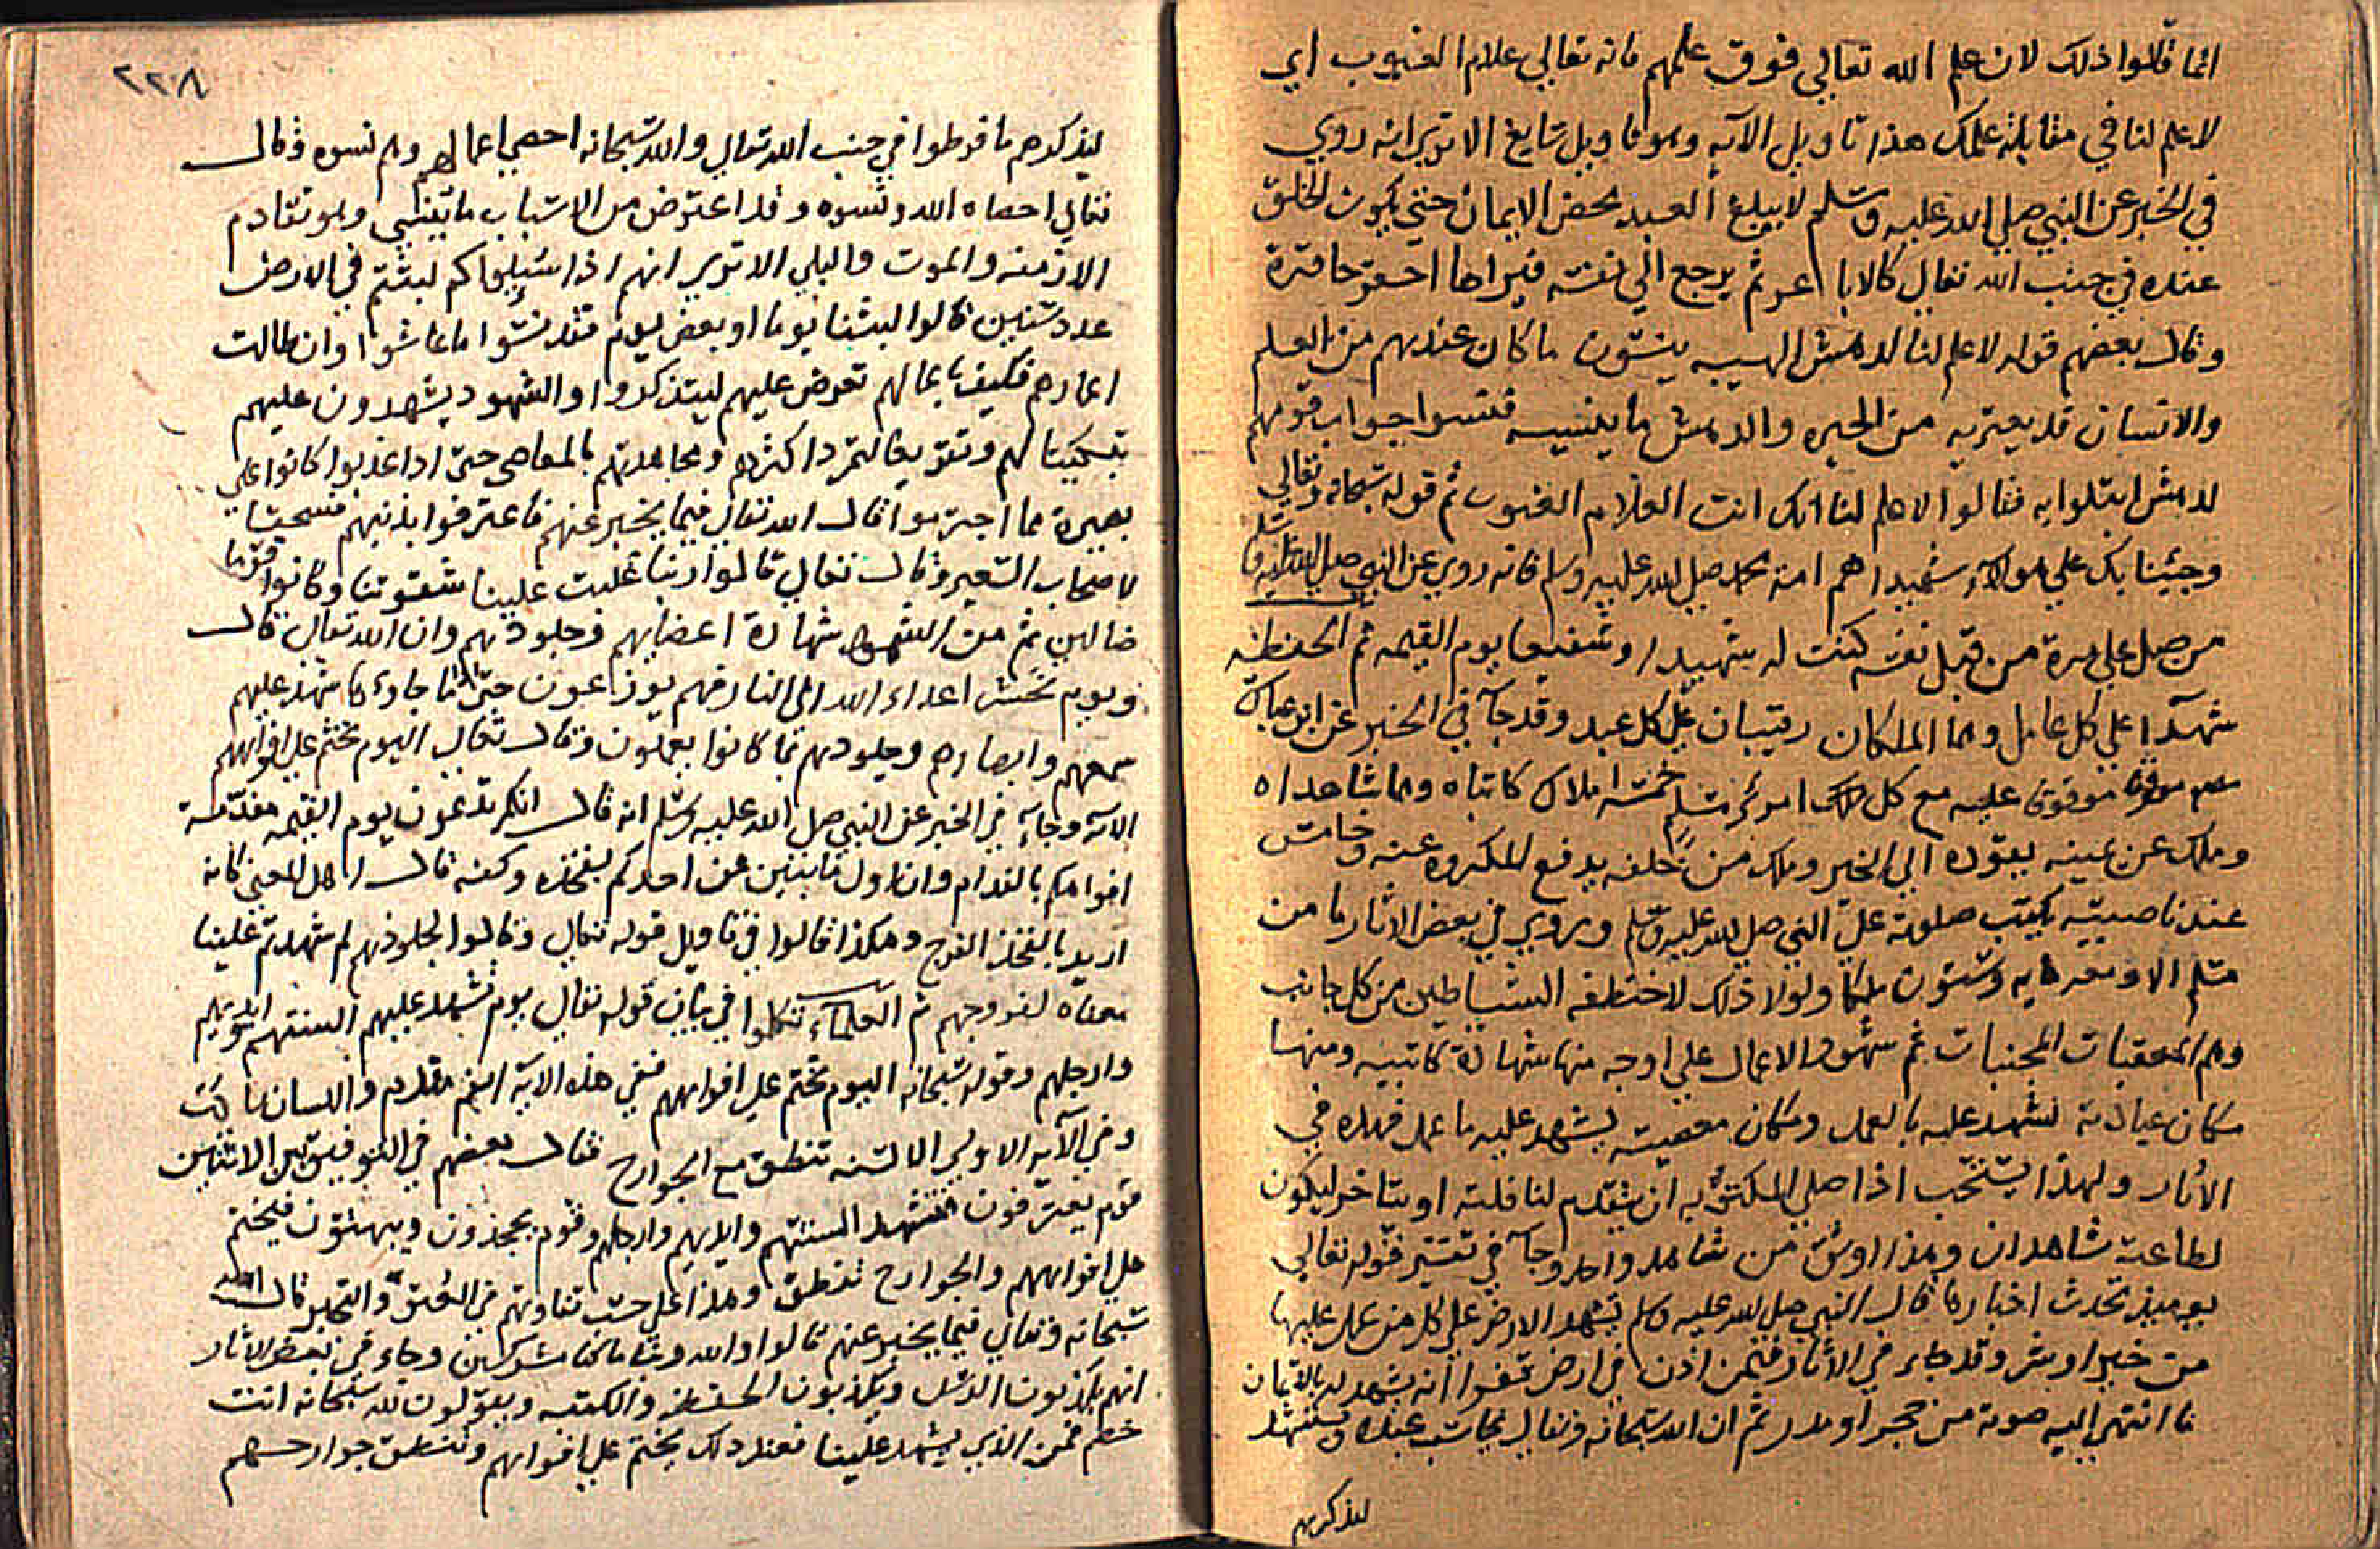 انما قالوا ذلك لان علم الله تعالي فوق علمهم فانه تعالي علام الغيوب اي
لا علم لنا في مقابلة علمك هذا تاويل الآيه وهو تاويل شايع الا تري انه روي
في الخبر عن النبي صلي الله عليه وسلم لا يبلغ العبد محض الايمان حتي يكون الخلق
عنده في جنب الله تعالي كالاباعر ثم يرجع الي نفسه فيراها احقر حاقرة
وقال بعضهم قوله لا علم لنا لدهش الهيبه ينسون ما كان عندهم من العلم
والانسان قد يعتريه من الحيره والدهش ما ينسيه فنسوا جواب قومهم
لدهش ابتلوا به فقالوا لا علم لنا انك انت العلام الغيوب ثم قوله سبحانه وتعالي
وجئنا بك علي هولآء شهيدا هم امة محمد صلي الله عليه وسلم فانه روي عن النبي صلي الله عليه وسلم
من صلي علي مرة من قبل نفسه كنت له شهيدا وشفيعا يوم القيمه ثم الحفظه
شهدآ علي كل عامل وهما الملكان رقيبان علي كل عبد وقد جآ في الخبر عن ابن عباس
موقوفا عليه مع كل امرئ مسلم خمسة املاك كاتباه وهما شاهداه
وملك عن يمينه يقوده الي الخير وملك من خلفه يدفع المكروه عنه وخامس
عند ناصيته يكتب صلوته علي النبي صلي الله عليه وسلم وروي في بعض الاثار ما من
مسلم الا ومعه مايه وستون ملكا ولولا ذلك لاختطفه الشياطين من كل جانب
وهم المعقبات المجنبات ثم شهود الاعمال علي اوجه منها شهادة كاتبيه ومنها
مكان عبادته لشهد عليه بالعمل ومكان معصيته يشهد عليه ما عمل فهذه في
الاثار ولهذا يستحب اذا صلي المكتوبه ان يتقدم لنافلته او يتاخر ليكون
لطاعته شاهدان وهذا اوثق من شاهد واحد وجآ في تفسير قوله تعالي
يوميذ تحدث اخبارها قال النبي صلي الله عليه وسلم يشهد الارض علي كل من عمل عليها
من خير او شر وقد جاء في الاثار فيمن اذن في ارض قفر انه يشهد له بالايمان
ما انتهي اليه صوته من حجر او مدر ثم ان الله سبحانه وتعالي يحاسب عبده ويستشهد
ليذكرهم
٢٢٨
ليذكرهم ما فرطوا في جنب الله تعالي والله سبحانه احصي اعمالهم وهم نسوه وقال
تعالي احصاه الله ونسوه وقد اعترض من الاسباب ما ينسي وهو تقادم
الازمنه والموت والبلي الا تري انهم اذا سيلوا كم لبثتم في الارض
عدد سنين قالوا لبثنا يوما او بعض يوم فقد نسوا ما عاشوا وان طالت
اعمارهم فكيف باعمالهم تعرض عليهم ليتذكروا والشهود يشهدون عليهم
تبكيتا لهم وتقريعا لتمرد اكثرهم ومجاهدتهم بالمعاصي حتي اذا عذبوا كانوا علي
بصيرة مما اجترموا قال الله تعالي فيما يخبر عنهم فاعترفوا بذنبهم فسحقا
لاصحاب السعير وقال تعالي قالوا ربنا غلبت علينا شقوتنا وكانوا قوما
ضالين ثم من الشهود شهادة اعضايهم وجلودهم وان الله تعالي قال
ويوم نحشر اعداء الله الي النار فهم يوزعون حتي اذا ما جاوها شهد عليهم
سمعهم وابصارهم وجلودهم بما كانوا يعملون وقال تعالي اليوم نختم علي افواههم
الآيه وجآء في الخبر عن النبي صلي الله عليه وسلم انه قال انكم تدعون يوم القيمه مفدمة
افواهكم بالفدام وان اول ما يبين عن احدكم لفخذه وكفه قال اهل المعني كانه
اريد بالفخذ الفرج وهكذا قالوا في تاويل قوله تعالي وقالوا لجلودهم لم شهدتم علينا
معناه لفروجهم ثم العلمآء تكلموا في بيان قوله تعالي يوم تشهد عليهم السنتهم وايديهم
وارجلهم وقوله سبحانه اليوم نختم علي افواههم ففي هذه الايه الفم مفدم واللسان ساكت
وفي الآيه الاولي الالسنه تنطق مع الجوارح فقال بعضهم في التوفيق بين الايتين
قوم يعترفون فتشهد السنتهم وايديهم وارجلهم وقوم يجحدون ويبهتون فيختم
علي افواههم والجوارح تنطق وهذا علي حسب تفاوتهم في العتو والتجبر قال الله
سبحانه وتعالي فيما يخبر عنهم قالوا والله ربنا ما كنا مشركين وجاء في بعض الاثار
انهم يكذبون الرسل ويكذبون الحفظه والكتبه ويقولون لله سبحانه انت
خصم فمن الذي يشهد علينا فعند ذلك يختم علي افواههم وتنطق جوارحهم